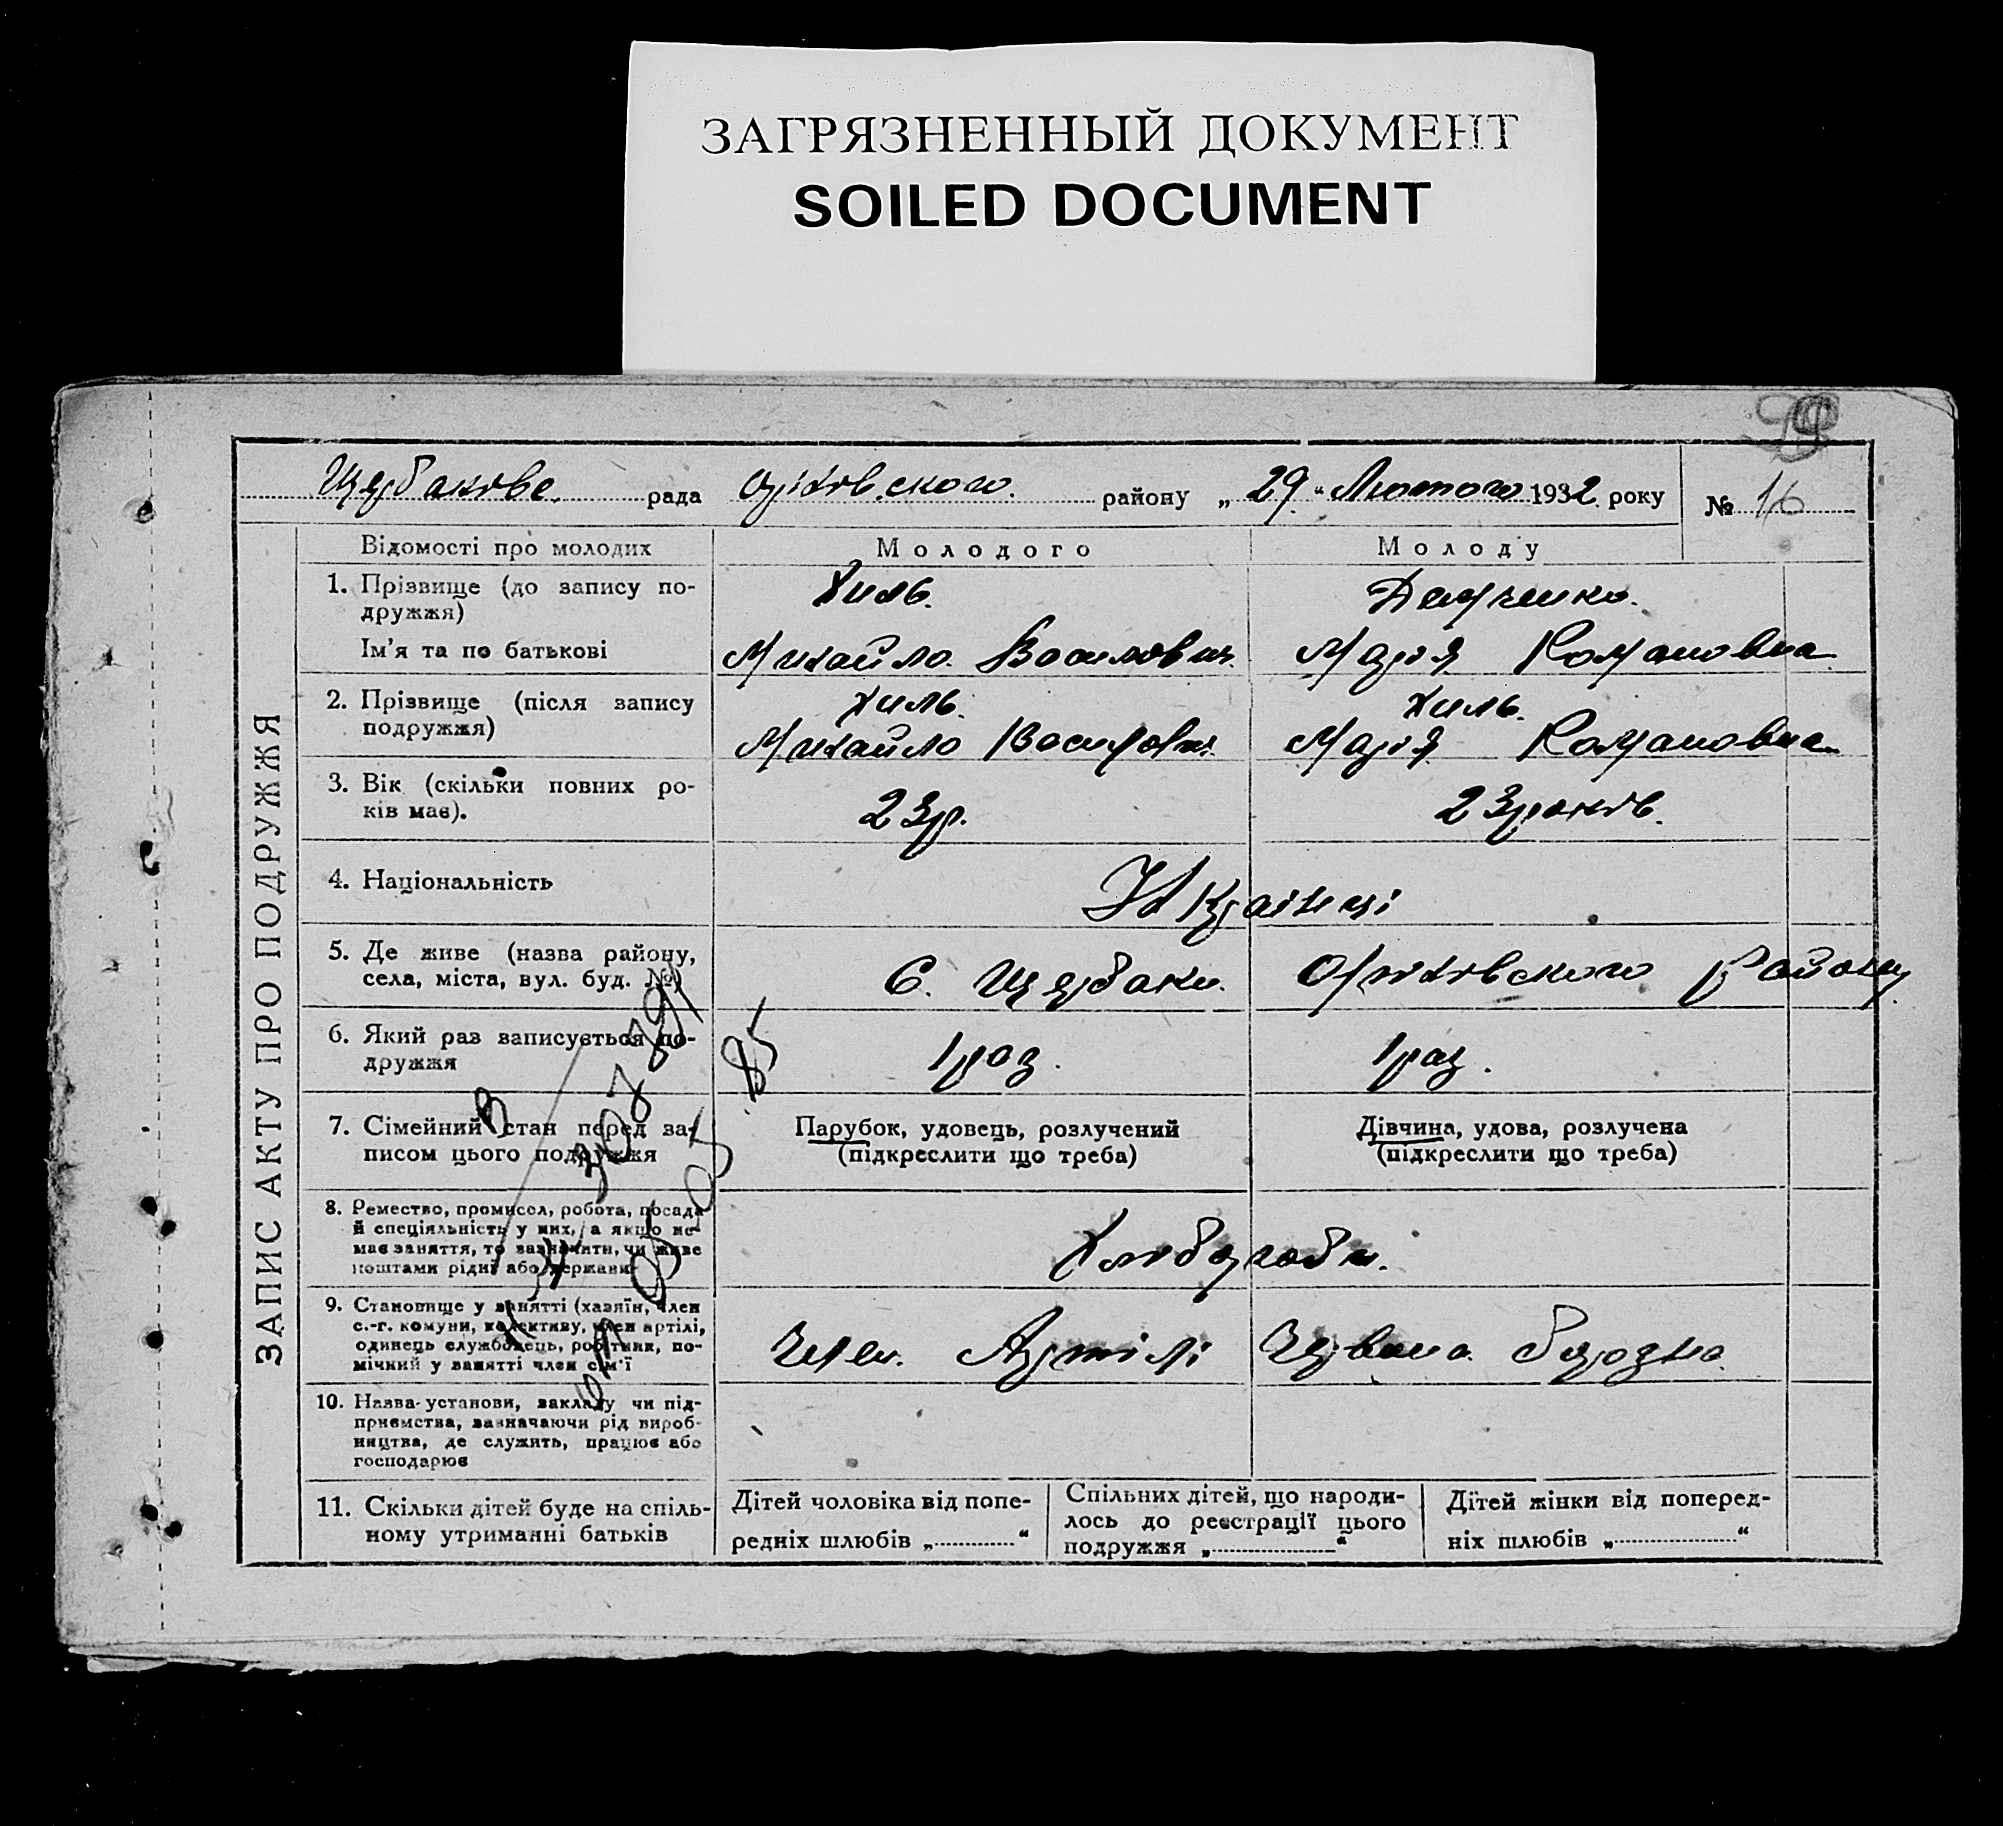 ЗАГРЯЗНЕННЫЙ ДОКУМЕНТ
SOILED DOCUMENT
рада району „29“ Лютого 1932 року № 16
ЗАПИС АКТУ ПРО ПОДРУЖЖЯ
Відомості про молодих
Молодого
Молоду
1. Прізвище (до запису по-
дружжя)
Хиль.
Демченко.
Ім'я та по батькові
Михайло Василович
Марія Романовна
2. Прізвище (після запису
подружжя)
Хиль.
Михайло Василович
Хиль.
Марія Романовна
3. Вік (скільки повних ро-
ків має).
23р.
23 років.
4. Національність
Українці
5. Де живе (назва району,
села, міста, вул. буд. №)
С. Щербаки. Оріхівского Району
6. Який раз записується по-
дружжя
1 раз.
1 раз.
7. Сімейний стан перед за-
писом цього подружжя
Парубок, удовець, розлучений
(підкреслити що треба)
Дівчина, удова, розлучена
(підкреслити що треба)
8. Ремество, промисел, робота, посада
й спеціяльність у них, а якщо не-
має заняття, то зазначити, чи живе
коштами рідні або держави
Хлібороби.
9. Становище у занятті (хазяїн, член
с.-г. комуни, колективу, член артілі,
одинець службовець, робітник, по-
мічний у занятті член сім'ї
Член Артілі
10. Назва установи, закладу чи під-
приємства, зазначаючи рід вироб-
ництва, де служить, працює або
господарює
11. Скільки дітей буде на спіль-
ному утриманні батьків
Дітей чоловіка від попе-
редніх шлюбів „ “
Спільних дітей, що народи-
лось до реєстрації цього
подружжя „ “
Дітей жінки від поперед-
ніх шлюбів „ “